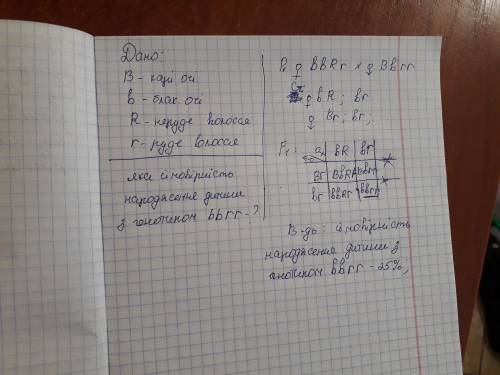 Дано:
В - карі очі
в - блак. очі
R - неруде волосся
r - руде волосся
яка ймовірність
народження дитини
з генотипом ввrr - ?
P: ♀ ввRr × ♂ Ввrr
G: ♀ вR; вr
♂ Вr; вr;
F₁:
вR | вr
Вr | ВвRr | Ввrr
вr | ввRr | ввrr
В-дь: ймовірність
народження дитини з
генотипом ввrr - 25%;